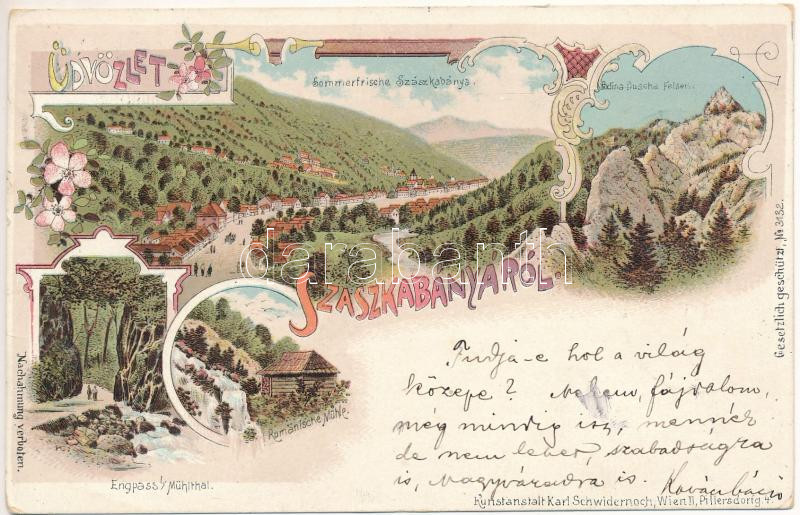 ÜDVÖZLET
Sommerfrische Szászkabánya.
Rolina-Puscha Felsen.
SZÁSZKABÁNYÁRÓL.
darabanth
Engpass i/ Mühlthal.
Romänische Mühle.
Nachahmung verboten.
Gesetzlich geschützt, No 3132.
Tudja-e hol a világ
közepe? Nekem, fájdalom,
még mindig itt, mennék
de nem lehet, szabadságra
is, Nagyváradra is.
Kunstanstalt Karl Schwidernoch, Wien II, Pillersdorfg. 4.